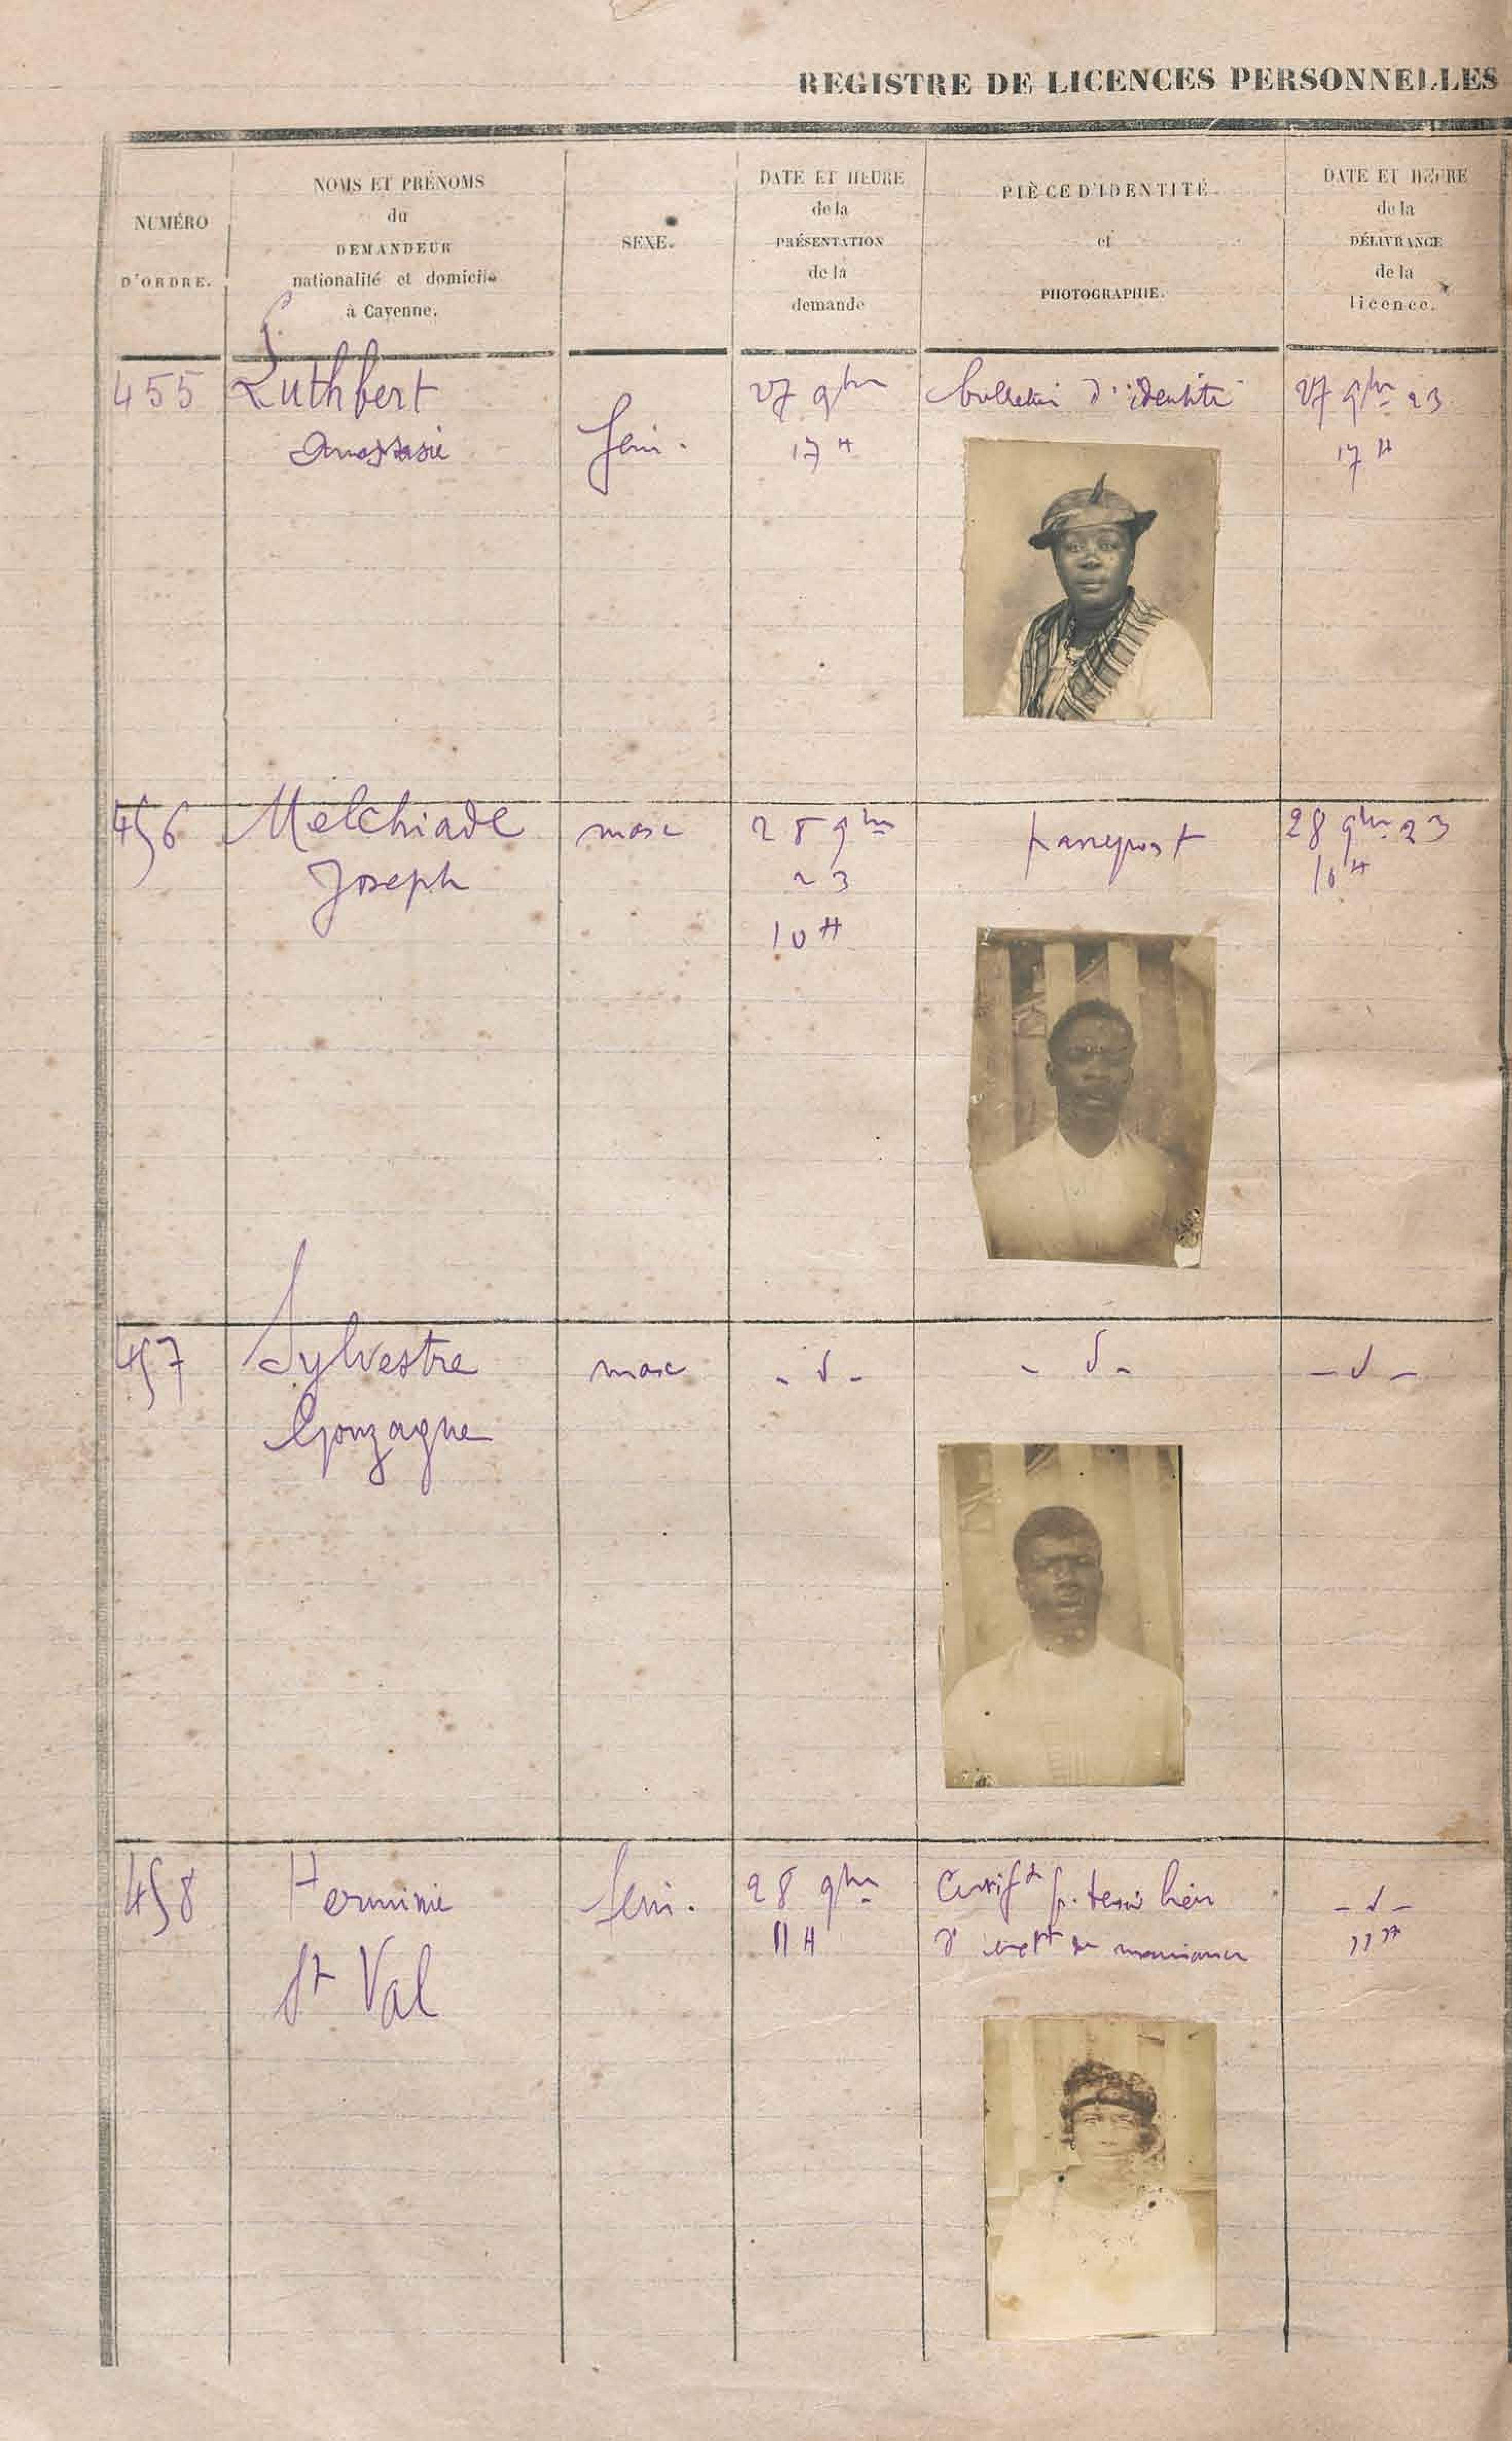 REGISTRE DE LICENCES PERSONNELLES
NUMÉRO
D'ORDRE.
NOMS ET PRÉNOMS
du
DEMANDEUR
nationalité et domicile
à Cayenne.
SEXE.
DATE ET HEURE
de la
PRÉSENTATION
de la
demande
PIÈCE D'IDENTITÉ
et
PHOTOGRAPHIE.
DATE ET HEURE
de la
DÉLIVRANCE
de la
licence.
455
Luthbert
Anastasie
fém.
27 9bre
17 H
bulletin d'identité
27 9bre 23
17 H
456
Melchiade
Joseph
masc
28 9bre
23
10 H
passeport
28 9bre 23
10 H
457
Sylvestre
Gonzague
masc
- d -
- d -
- d -
458
Herminie
St Val
fém.
28 9bre
11 H
Certift pr. tenir lieu
d'
de
- d -
11 H